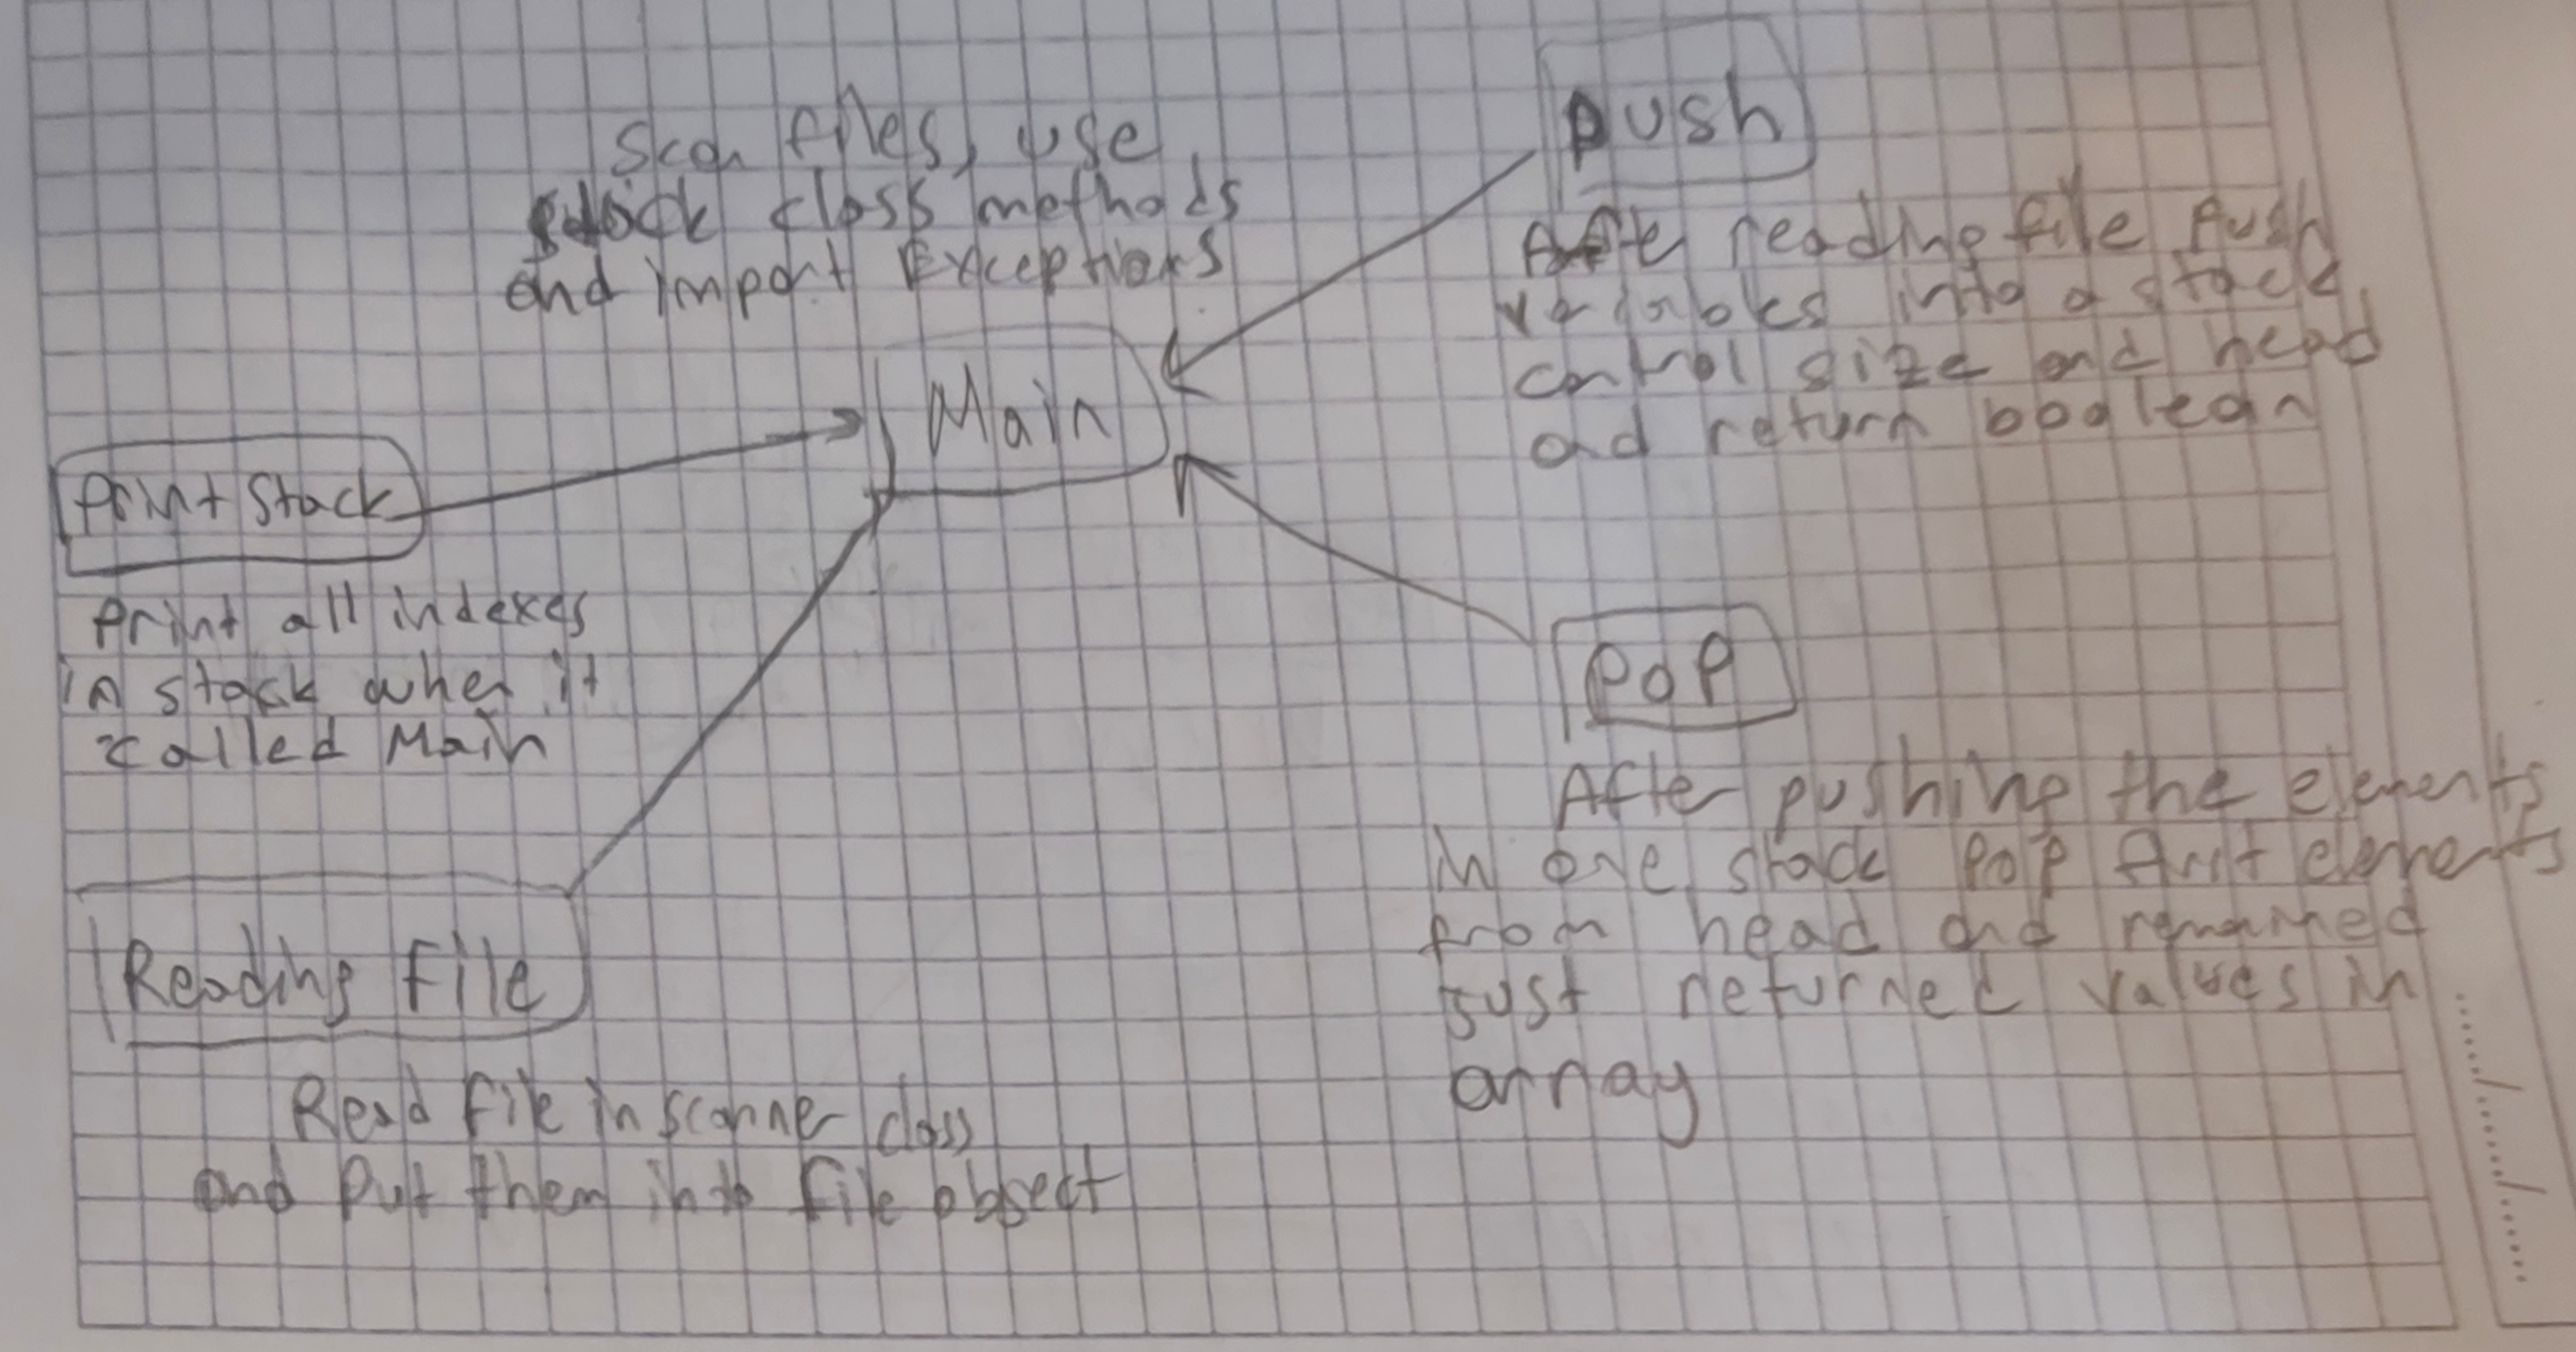 Scan files, use
stack class methods
and import Exceptions
Main
push
After reading file Push
variables into a stack,
control size and head
and return boolean
Print Stack
Print all indexes
in stack when it
called Main
Pop
After pushing the elements
in one stack pop first elements
from head and remained
just returned values in
array
Reading File
Read File in scanner class
and Put them into File object